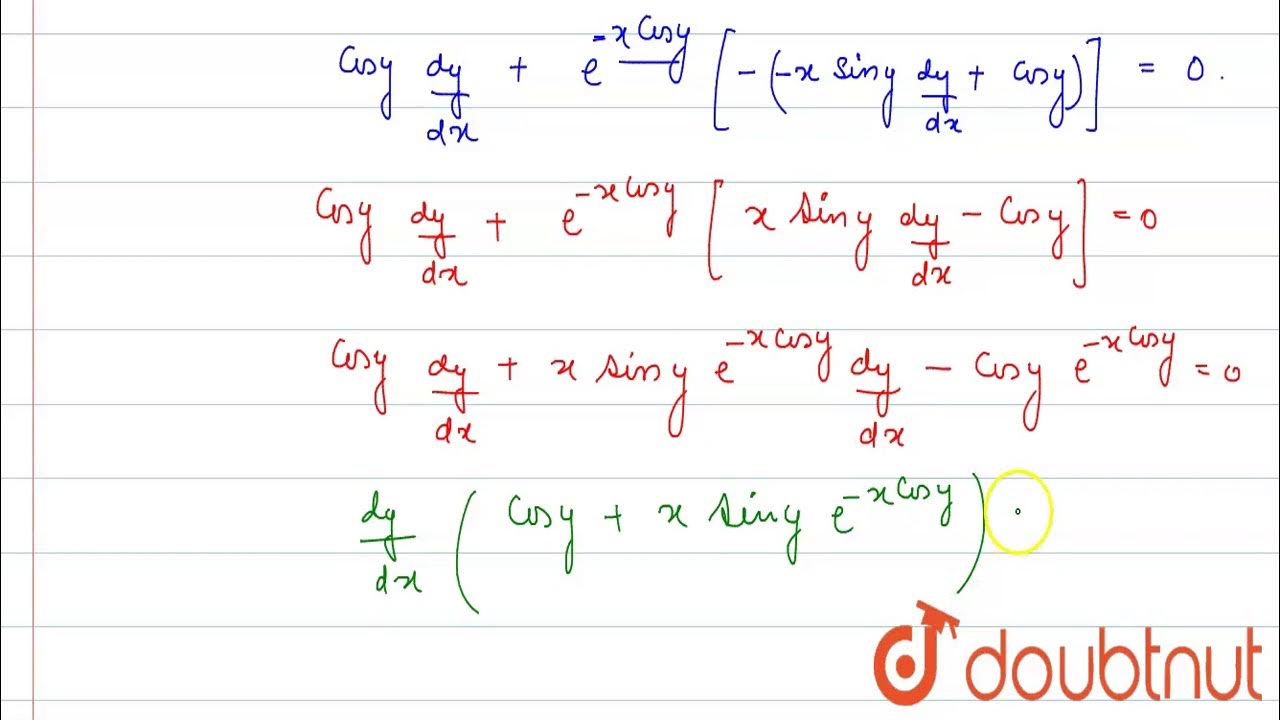 Cosy dy/dx + e^{-x Cosy} [-(-x Siny dy/dx + Cosy)] = 0.
Cosy dy/dx + e^{-x Cosy} [x Siny dy/dx - Cosy] = 0
Cosy dy/dx + x siny e^{-x Cosy} dy/dx - Cosy e^{-x Cosy} = 0
dy/dx (Cosy + x Siny e^{-x Cosy})
doubtnut